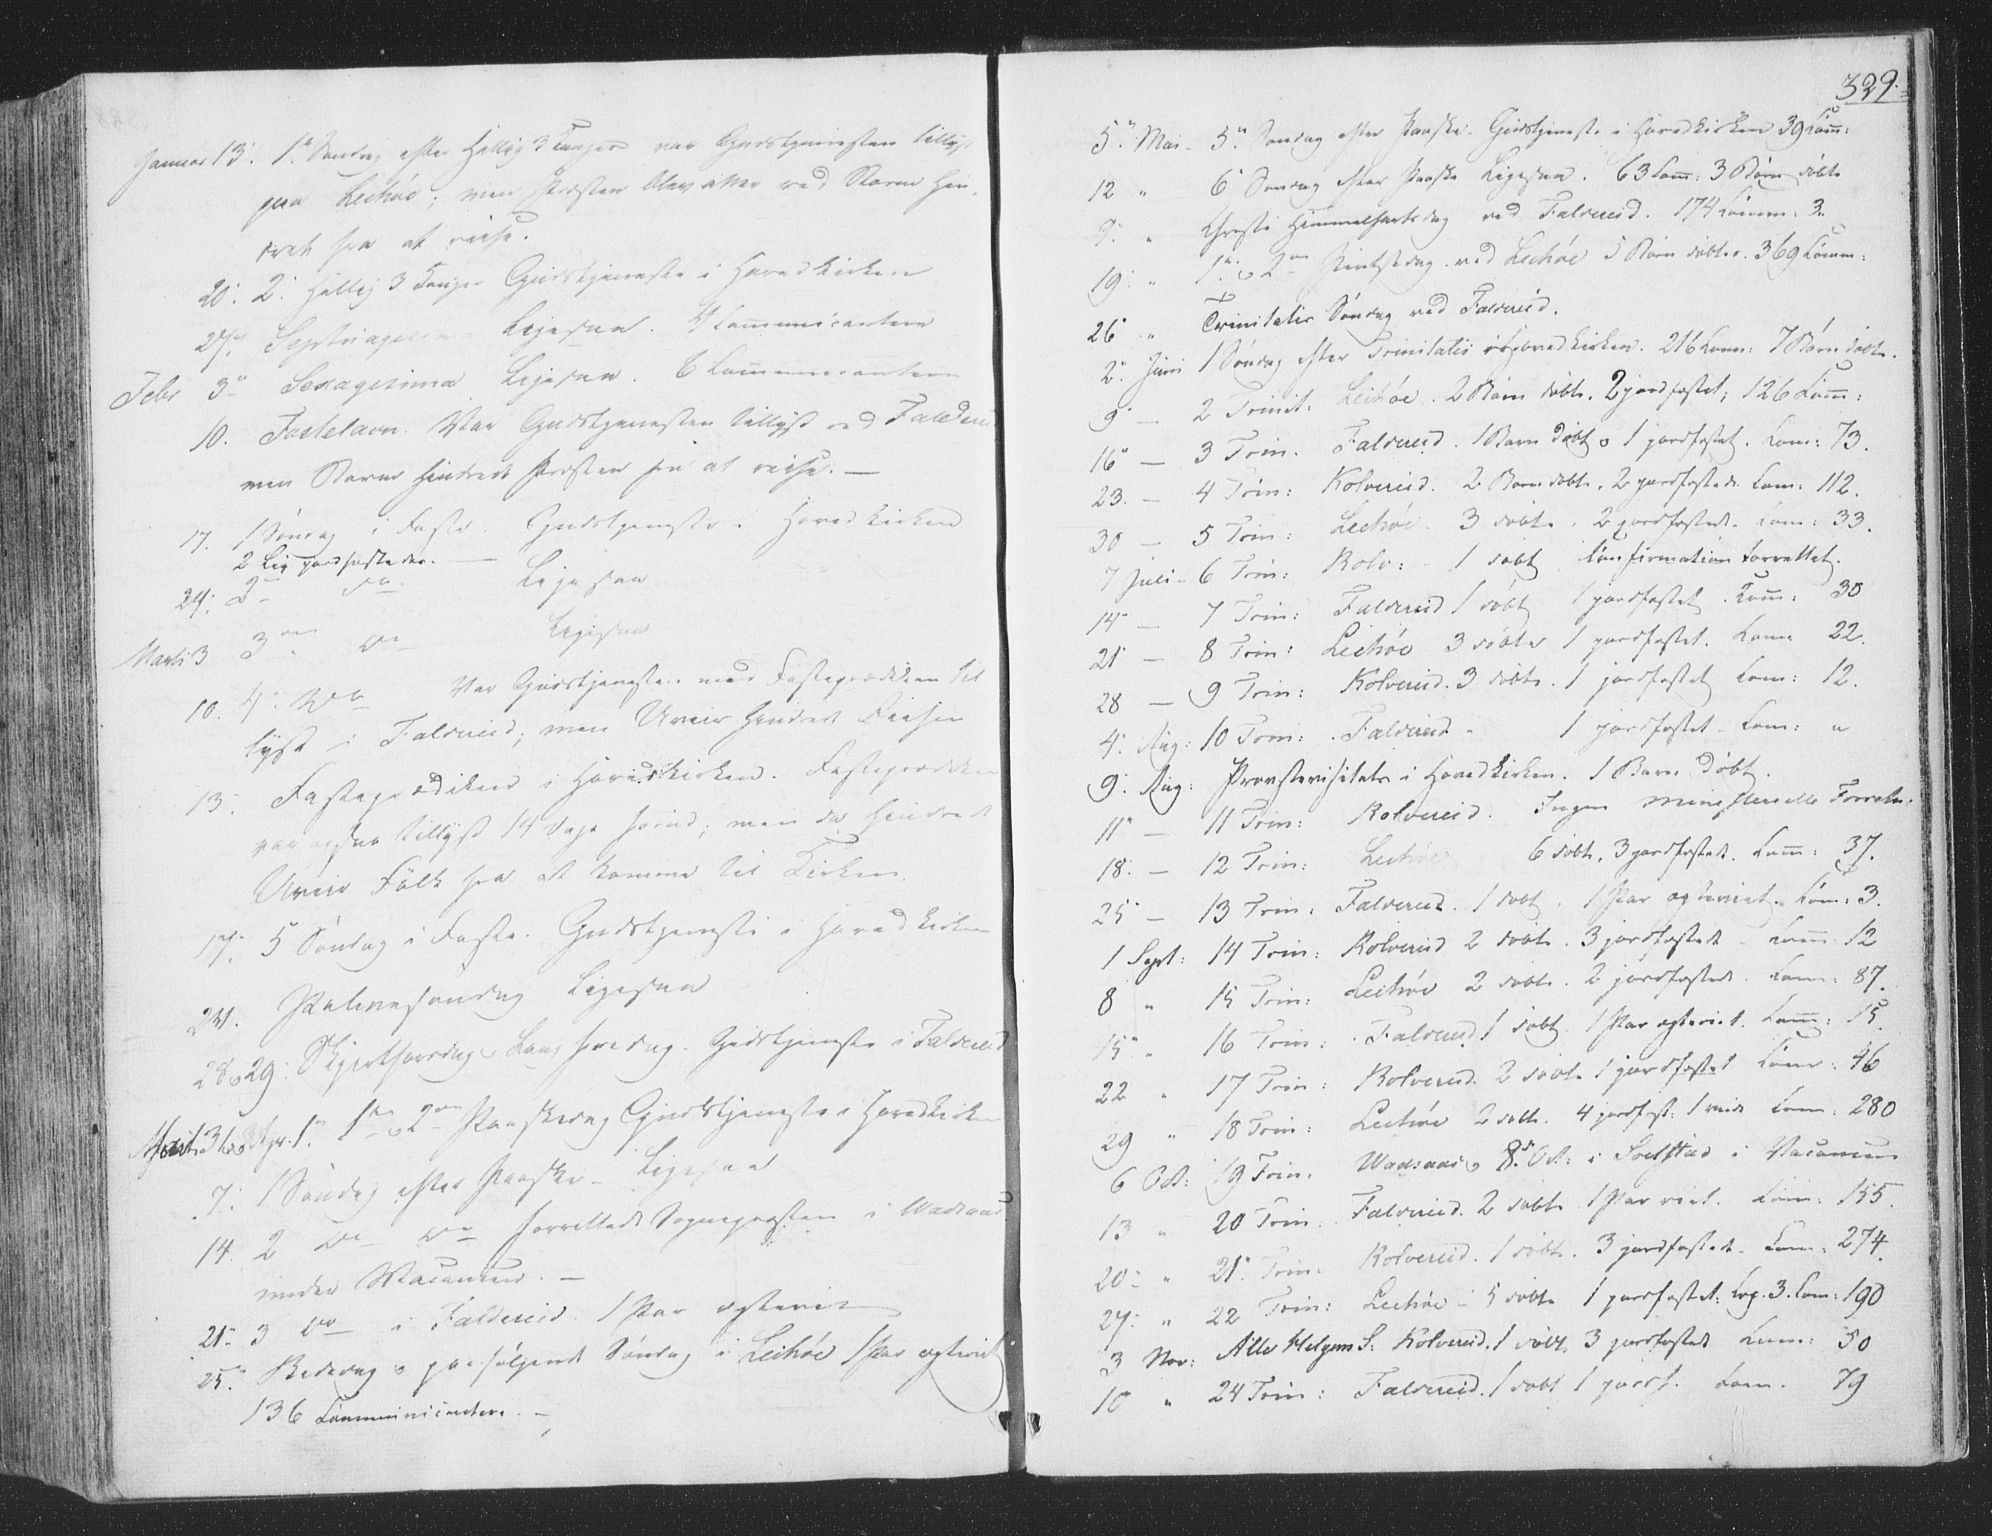 Januar 13. 1ste Søndag efter Hellig 3 Konger var Gudstjenesten tillyst
paa Lechøe; men Præsten blev atter ved Storm hin-
dret fra at reise.
20. 2. Hellig 3 Konger Gudstjeneste i Hovedkirken
27. Septuagesima Ligesaa. 4 Communicantere
Febr 3. Sexagesima Ligesaa. 6 Communicantere
10. Fastelavn. Var Gudstjenesten tillyst ved Foldereid
men Storm hindrede Præsten fra at reise. —
17. 1 Søndag i Faste. Gudstjeneste i Hovedkirken
2 Lig jordfæstede. —
24. 2den do Ligesaa
Marti 3 3die do Ligesaa
10. 4. do Var Gudstjeneste med Fasteprædiken til
lyst i Foldereid; men Uveir hindrede Reisen
13. Fasteprædiken i Hovedkirken. Fasteprædiken
var ogsaa tillyst 14 Dage forud; men da hindrede
Uveir Folk fra at komme til Kirken.
17. 5 Søndag i Faste. Gudstjeneste i Hovedkirken
24. Palmesøndag Ligesaa
28 & 29. Skjertorsdag & Langfredag. Gudstjeneste i Foldereid
Marti 31 & Apr. 1. 1ste & 2den Paaskedag Gudstjeneste i Hovedkirken
7. 1 Søndag efter Paaske – Ligesaa
14. 2 do do forrettede Sognepræsten i Wadsaas
under Vacancen. —
21. 3 do i Foldereid. 1 Par ægteviet
25. Bededag & paafølgende Søndag i Lechøe 1 Par ægteviet
136 Communicantere. —
329.
5. Mai – 5. Søndag efter Paaske. Gudstjeneste i Hovedkirken 39 Com:
12 " 6 Søndag efter Paaske Ligesaa. 63 Com: 3 Børn døbte
9. " Christi Himmelfartsdag ved Foldereid. 174 Comm: 3.
19. " 1. & 2den Pintsedag ved Lechøe 5 Børn døbte. 369 Comm:
26 " Trinitatis Søndag ved Foldereid.
2. Juni 1 Søndag efter Trinitatis i Hovedkirken. 216 Comm: 7 Børn døbte.
9 — 2 Trinit: Lechøe. 2 Børn døbte. 2 jordfæstet; 126 Com:
16 — 3 Trin. Foldereid. 1 Barn døbt & 1 jordfæstet. Com: 73.
23. — 4 Trin: Kolvereid. 2 Børn døbte. 2 jordfæstede. Com: 112.
30 — 5 Trin: Lechøe. 3 døbte. 2 jordfæstede. Com: 33.
7 Juli – 6 Trin: Kolv: – 1 døbt Confirmation forrettet.
14 — 7 Trin: Foldereid 1 døbt 1 jordfæstet. Com: 30
21 — 8 Trin: Lechøe 3 døbte 1 jordfæstet. Com: 22.
28 — 9 Trin: Kolvereid. 3 døbte. 1 jordfæstet Com: 12.
4. Aug: 10 Trin: Foldereid – 1 jordfæstet – Com: "
9. Aug: Provstevisitats i Hovedkirken. 1 Barn døbt.
11 — 11 Trin: Kolvereid. Ingen ministerielle Forretn:
18. — 12 Trin: Lechøe 6 døbte, 3 jordfæstede. Com: 37.
25 — 13 Trin: Foldereid. 1 døbt. 1 Par ægteviet. Com: 3.
1 Sept: 14 Trin: Kolvereid 2 døbte. 3 jordfæstede – Com: 12
8 " 15 Trin: Lechøe 2 døbte. 2 jordfæstede. Com: 87.
15 " 16 Trin: Foldereid 1 døbt 1 Par ægteviet. Com: 15.
22 " 17 Trin: Kolvereid. 2 døbte 1 jordfæstet Com: 46
29 " 18 Trin: Lechøe 2 døbte. 4 jordfæst: 1 viede Com: 280
6 Oct: 19 Trin. Wadsaas & 8. Oct: i Vacancen
13 " 20 Trin. Foldereid. 2 døbte 1 Par viet. Com: 155.
20 " 21. Trin: Kolvereid. 1 døbt. 3 jordfæstede – Com: 274.
27. " 22 Trin: Lechøe – 5 døbte 1 jordfæstet. 3. Com: 190
3 Nov: Alle Helgens S: Kolvereid. 1 døbt. 3 jordfæstede Com: 50
10 " 24 Trin: Foldereid. 1 døbt 1 jordf. Com. 79